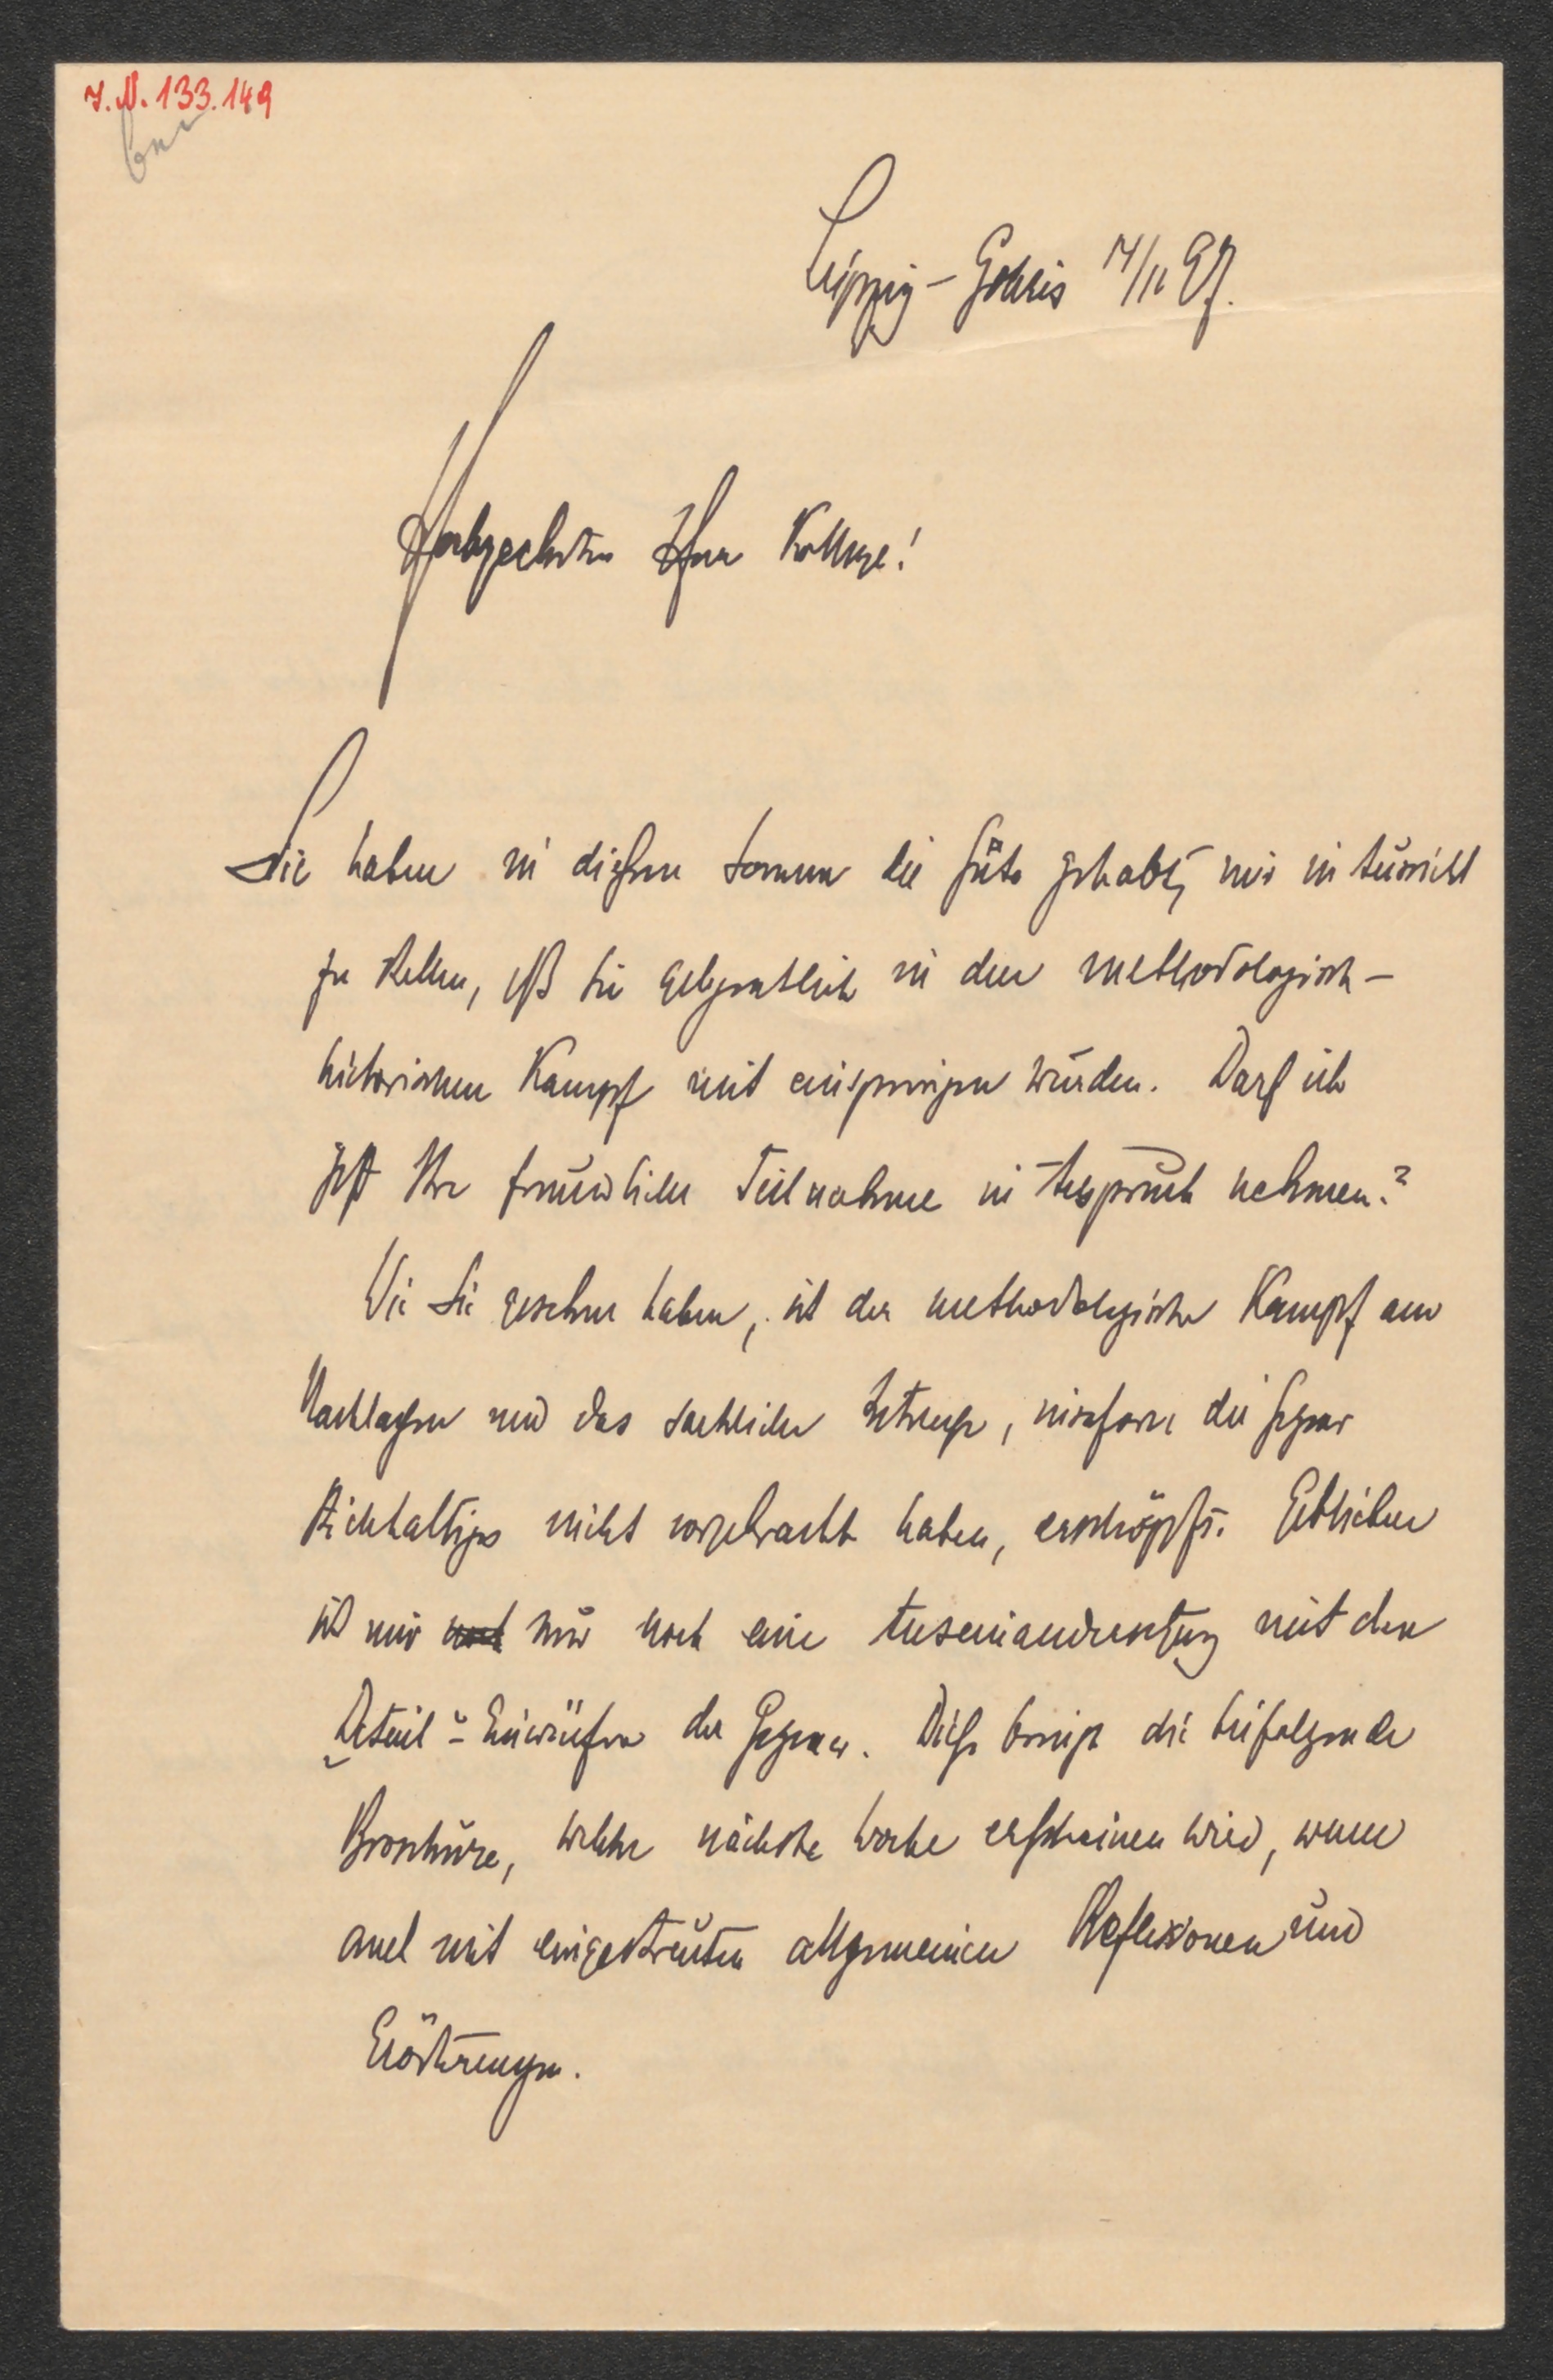 I. N. 133.149
Leipzig-Gohlis 14/11 97.
Hochgeehrter Herr Kollege!
Sie haben in diesem Sommer die Güte gehabt, mir in Aussicht
zu stellen, daß Sie gelegentlich in den methodologisch-
historischen Kampf mit einspringen würden. Darf ich
jetzt Ihre freundliche Teilnahme in Anspruch nehmen?
Wie Sie gesehen haben, ist der methodologische Kampf am
Nachlassen und das sachliche Interesse, insofern die Gegner
Stichhaltiges nicht vorgebracht haben, erschöpft. Geblieben
ist mir noch nur noch eine Auseinandersetzung mit den
Detail-Einwürfen der Gegner. Diese bringt die beifolgende
Broschüre, welche nächste Woche erscheinen wird, wenn
auch mit eingestreuten allgemeinen Reflexionen und
Erörterungen.